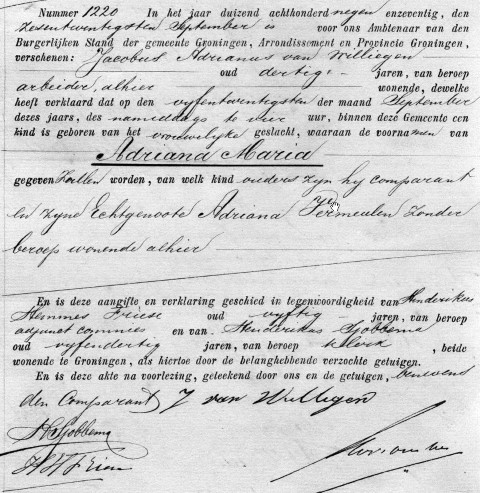 Nummer 1220 In het jaar duizend achthonderd negen enzeventig, den
zesentwintigsten September is voor ons Ambtenaar van den
Burgerlijken Stand der gemeente Groningen, Arrondissement en Provincie Groningen,
verschenen: Jacobus Adrianus van Williegen
oud dertig jaren, van beroep
arbeider, alhier wonende, dewelke
heeft verklaard dat op den vyfentwintigsten der maand September
dezes jaars, des nameddags te vier uur, binnen deze Gemeente een
kind is geboren van het vrouwelyke geslacht, waaraan de voornamen van
Adriana Maria
gegeven zullen worden, van welk kind ouders zyn hy comparant
en zyne Echtgenoote Adriana Vermeulen zonder
beroep wonende alhier
En is deze aangifte en verklaring geschied in tegenwoordigheid van Henderikus
Hemmes Friese oud vyftig jaren, van beroep
adjunct commies en van Henderikus Sjobbema
oud vyfendertig jaren, van beroep klerk, beide
wonende te Groningen, als hiertoe door de belanghebbende verzochte getuigen.
En is deze akte na voorlezing, geteekend door ons en de getuigen, benevens
den Comparant J van Willigen
HSjobbema
HH Friese